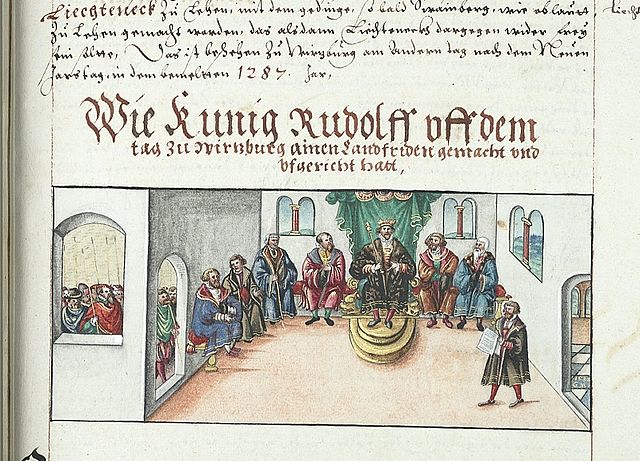 Liechteneck Zu Lehen, mit dem gedinge, so bald Swainberg, wie es laut
Zu Lehen gemacht worden, das alsdann Liechteneck dargegen wider frey
sein solte, Das ist besehen Zu Wirtzburg am andern tag nach dem Neuen
Jars tag, in dem bemelten 1287. Jar,
Wie Kunig Rudolff vff dem
tag Zu wirtzburg ainen Landfriden gemacht vnd
vfgericht hatt,